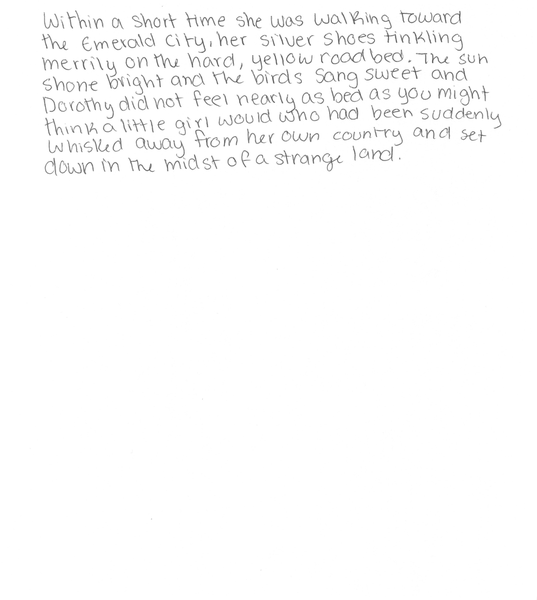 Within a short time she was walking toward
the Emerald City, her silver shoes tinkling
merrily on the hard, yellow roadbed. The sun
shone bright and the birds sang sweet and
Dorothy did not feel nearly as bed as you might
think a little girl would who had been suddenly
whisked away from her own country and set
down in the midst of a strange land.